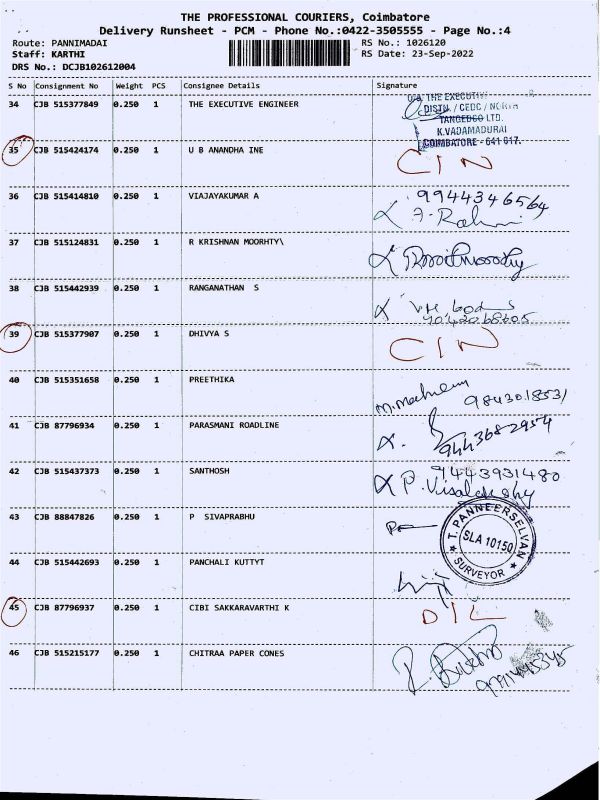 THE PROFESSIONAL COURIERS, Coimbatore
Delivery Runsheet - PCM - Phone No.:0422-3505555 - Page No.:4
Route: PANNIMADAI RS No.: 1026120
Staff: KARTHI RS Date: 23-Sep-2022
DRS No.: DCJB102612004
S No Consignment No Weight PCS Consignee Details Signature
34 CJB 515377849 0.250 1 THE EXECUTIVE ENGINEER
THE EXECUTIVE
DISTN. / CEDC / NORTH
TANGEDCO LTD.
K.VADAMADURAI
COIMBATORE - 641 017.
35 CJB 515424174 0.250 1 U B ANANDHA INE CIN
36 CJB 515414810 0.250 1 VIAJAYAKUMAR A 9944346564
37 CJB 515124831 0.250 1 R KRISHNAN MOORHTY\
38 CJB 515442939 0.250 1 RANGANATHAN S
39 CJB 515377907 0.250 1 DHIVYA S CIN
40 CJB 515351658 0.250 1 PREETHIKA 9843018531
41 CJB 87796934 0.250 1 PARASMANI ROADLINE 9443682954
42 CJB 515437373 0.250 1 SANTHOSH 9443931480
43 CJB 88847826 0.250 1 P SIVAPRABHU
T. PANNEERSELVAN
SLA 10150
SURVEYOR
44 CJB 515442693 0.250 1 PANCHALI KUTTYT
45 CJB 87796937 0.250 1 CIBI SAKKARAVARTHI K DIL
46 CJB 515215177 0.250 1 CHITRAA PAPER CONES